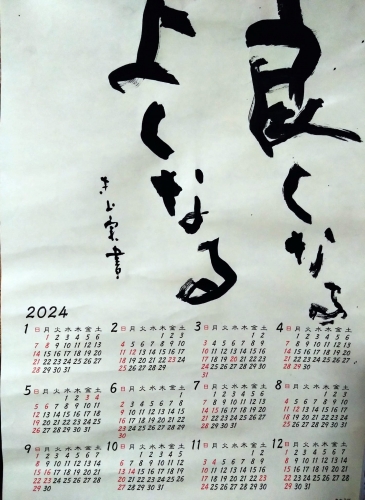 良くなる
よくなる
2024
1
日 月 火 水 木 金 土
1 2 3 4 5 6
7 8 9 10 11 12 13
14 15 16 17 18 19 20
21 22 23 24 25 26 27
28 29 30 31
2
日 月 火 水 木 金 土
1 2 3
4 5 6 7 8 9 10
11 12 13 14 15 16 17
18 19 20 21 22 23 24
25 26 27 28 29
3
日 月 火 水 木 金 土
1 2
3 4 5 6 7 8 9
10 11 12 13 14 15 16
17 18 19 20 21 22 23
24 25 26 27 28 29 30
31
4
日 月 火 水 木 金 土
1 2 3 4 5 6
7 8 9 10 11 12 13
14 15 16 17 18 19 20
21 22 23 24 25 26 27
28 29 30
5
日 月 火 水 木 金 土
1 2 3 4
5 6 7 8 9 10 11
12 13 14 15 16 17 18
19 20 21 22 23 24 25
26 27 28 29 30 31
6
日 月 火 水 木 金 土
1
2 3 4 5 6 7 8
9 10 11 12 13 14 15
16 17 18 19 20 21 22
23 24 25 26 27 28 29
30
7
日 月 火 水 木 金 土
1 2 3 4 5 6
7 8 9 10 11 12 13
14 15 16 17 18 19 20
21 22 23 24 25 26 27
28 29 30 31
8
日 月 火 水 木 金 土
1 2 3
4 5 6 7 8 9 10
11 12 13 14 15 16 17
18 19 20 21 22 23 24
25 26 27 28 29 30 31
9
日 月 火 水 木 金 土
1 2 3 4 5 6 7
8 9 10 11 12 13 14
15 16 17 18 19 20 21
22 23 24 25 26 27 28
29 30
10
日 月 火 水 木 金 土
1 2 3 4 5
6 7 8 9 10 11 12
13 14 15 16 17 18 19
20 21 22 23 24 25 26
27 28 29 30 31
11
日 月 火 水 木 金 土
1 2
3 4 5 6 7 8 9
10 11 12 13 14 15 16
17 18 19 20 21 22 23
24 25 26 27 28 29 30
12
日 月 火 水 木 金 土
1 2 3 4 5 6 7
8 9 10 11 12 13 14
15 16 17 18 19 20 21
22 23 24 25 26 27 28
29 30 31